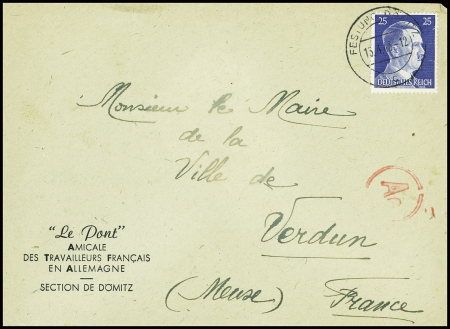 FESTUNG
25 25
DEUTSCHES REICH
Monsieur le Maire
de la
Ville de
Verdun
(Meuse) France
Ac
"Le Pont"
AMICALE
DES TRAVAILLEURS FRANÇAIS
EN ALLEMAGNE
SECTION DE DÖMITZ